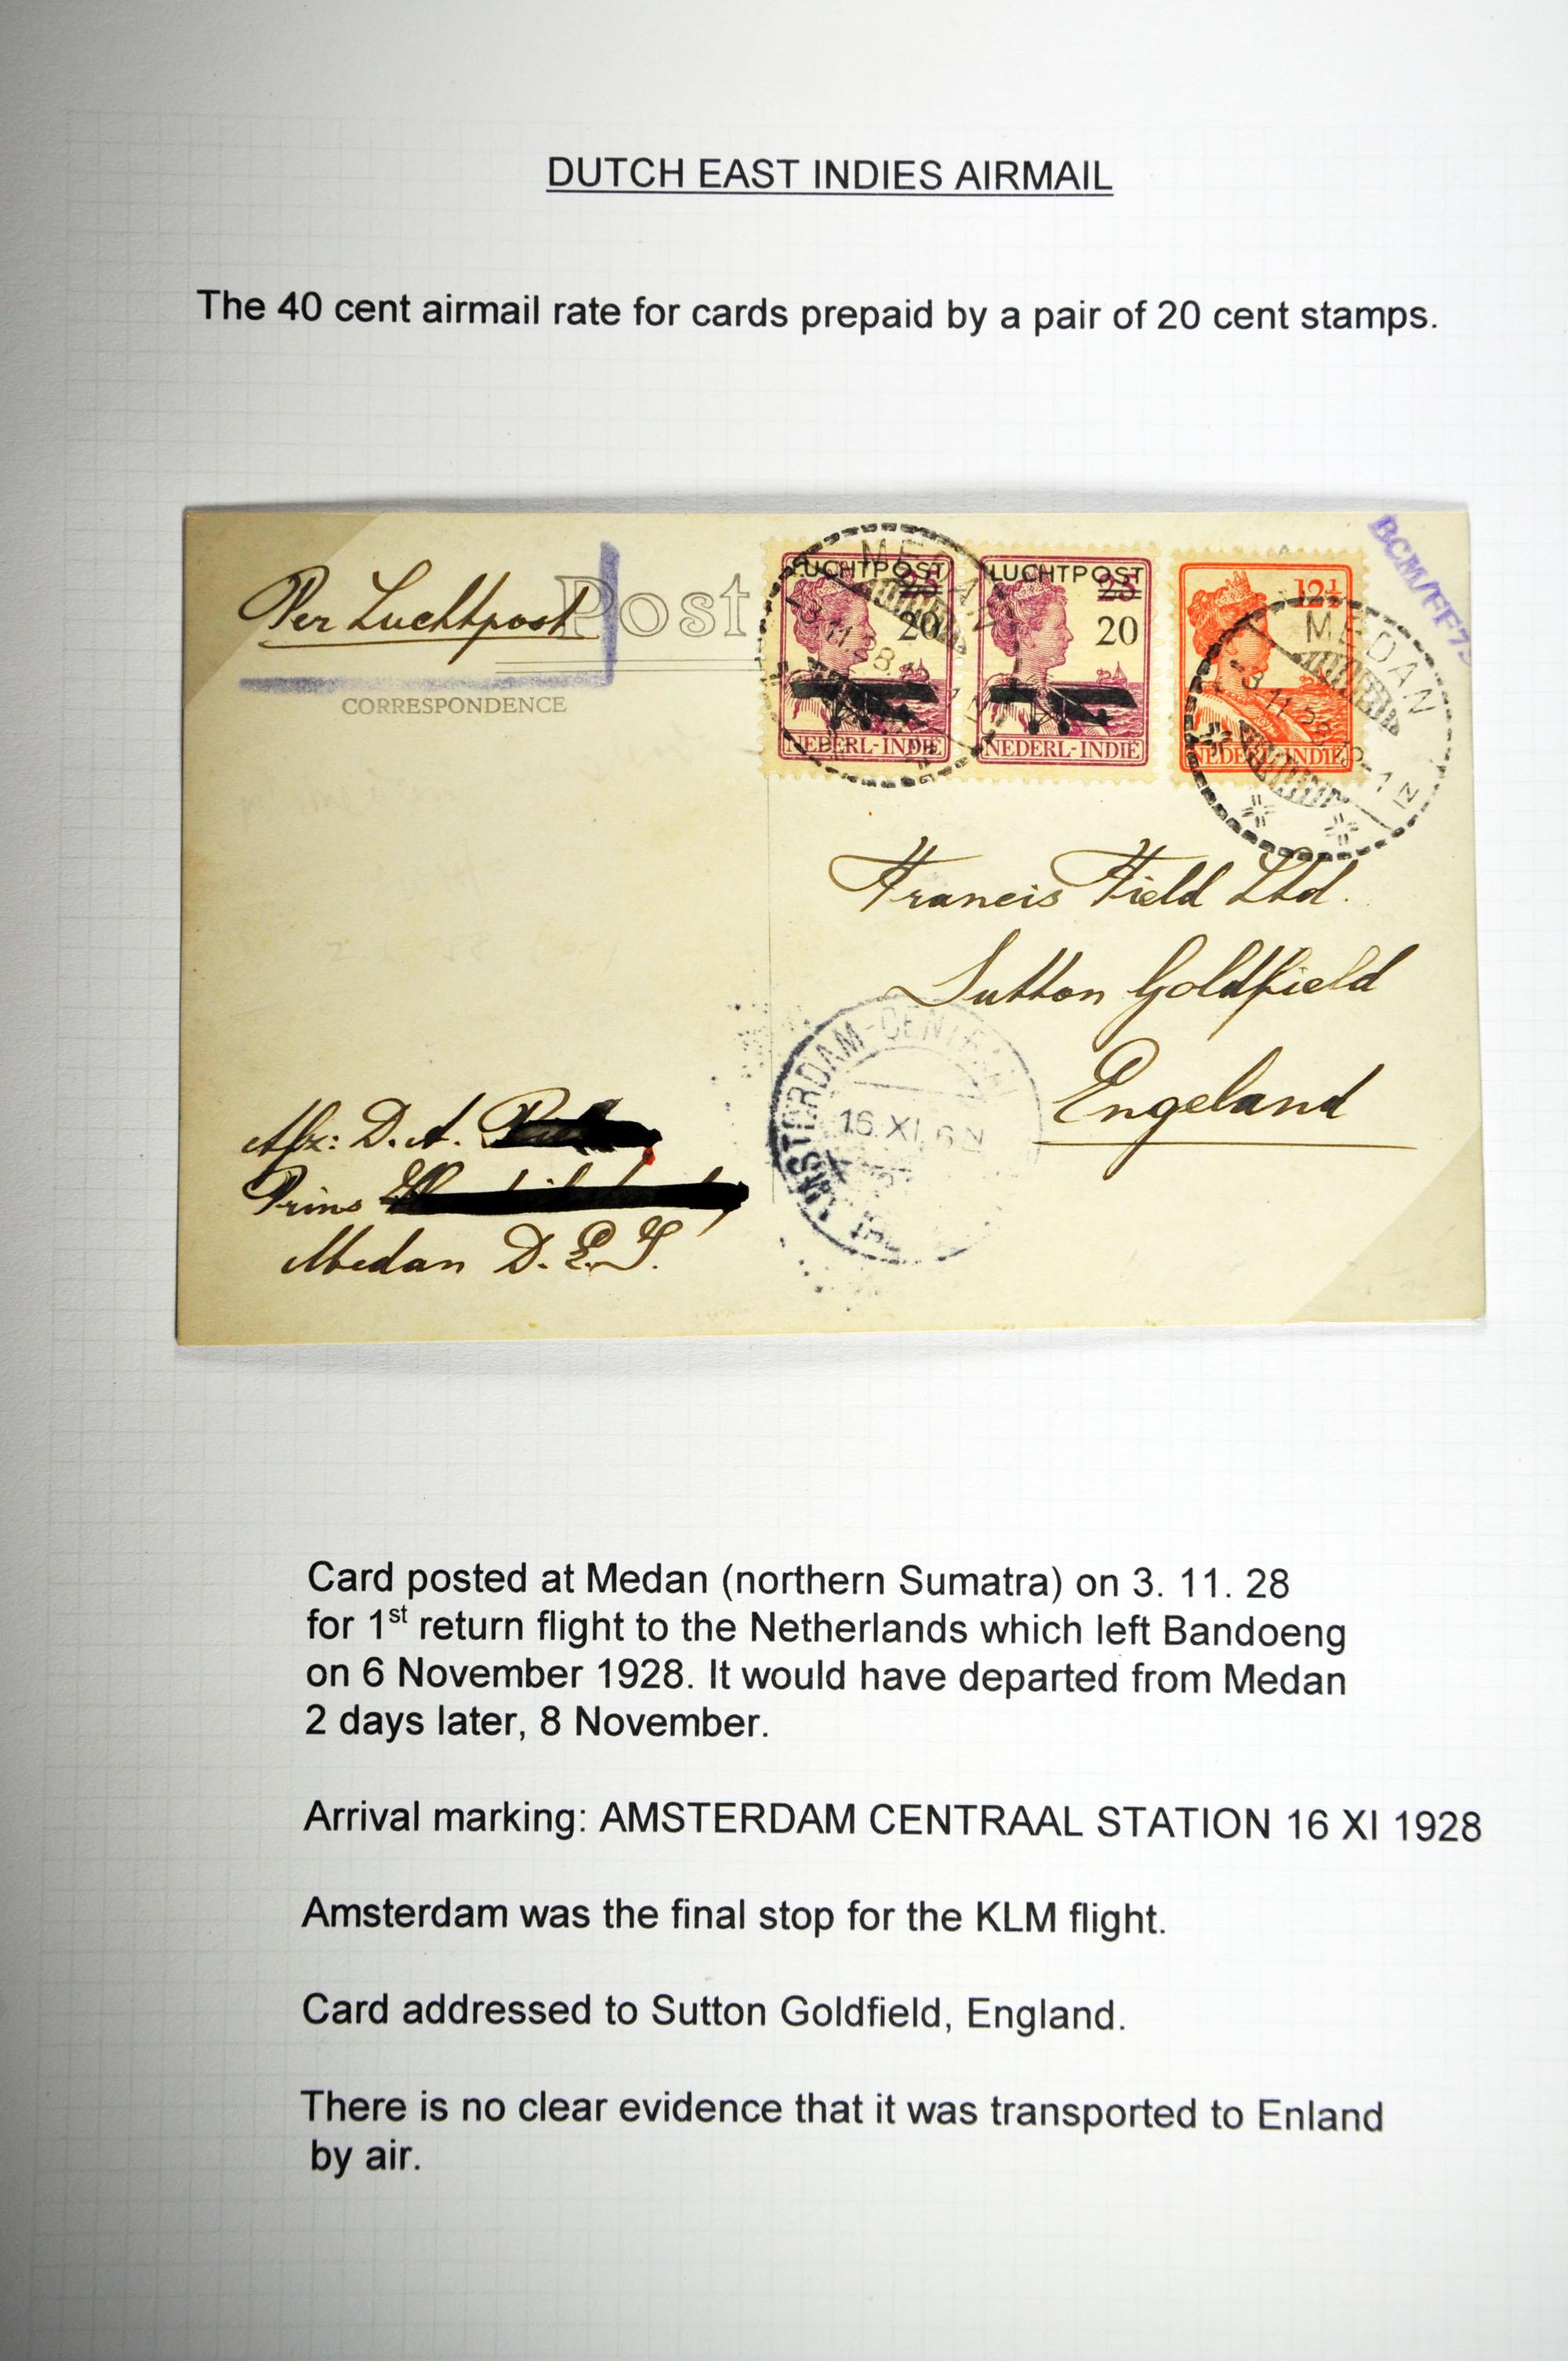 DUTCH EAST INDIES AIRMAIL
The 40 cent airmail rate for cards prepaid by a pair of 20 cent stamps.
Per Luchtpost
Post
CORRESPONDENCE
LUCHTPOST
25
20
NEDERL-INDIË
LUCHTPOST
25
20
NEDERL-INDIË
12½
NEDERL-INDIË
MEDAN
3.11.28
MEDAN
3.11.28
1 N
BCM/FF7
Francis Field Ltd.
Sutton Goldfield
Engeland
AMSTERDAM-CENTRAAL
16.XI.6 N
Afz: D. A.
Prins
Medan D. E. I.
Card posted at Medan (northern Sumatra) on 3. 11. 28
for 1st return flight to the Netherlands which left Bandoeng
on 6 November 1928. It would have departed from Medan
2 days later, 8 November.
Arrival marking: AMSTERDAM CENTRAAL STATION 16 XI 1928
Amsterdam was the final stop for the KLM flight.
Card addressed to Sutton Goldfield, England.
There is no clear evidence that it was transported to Enland
by air.